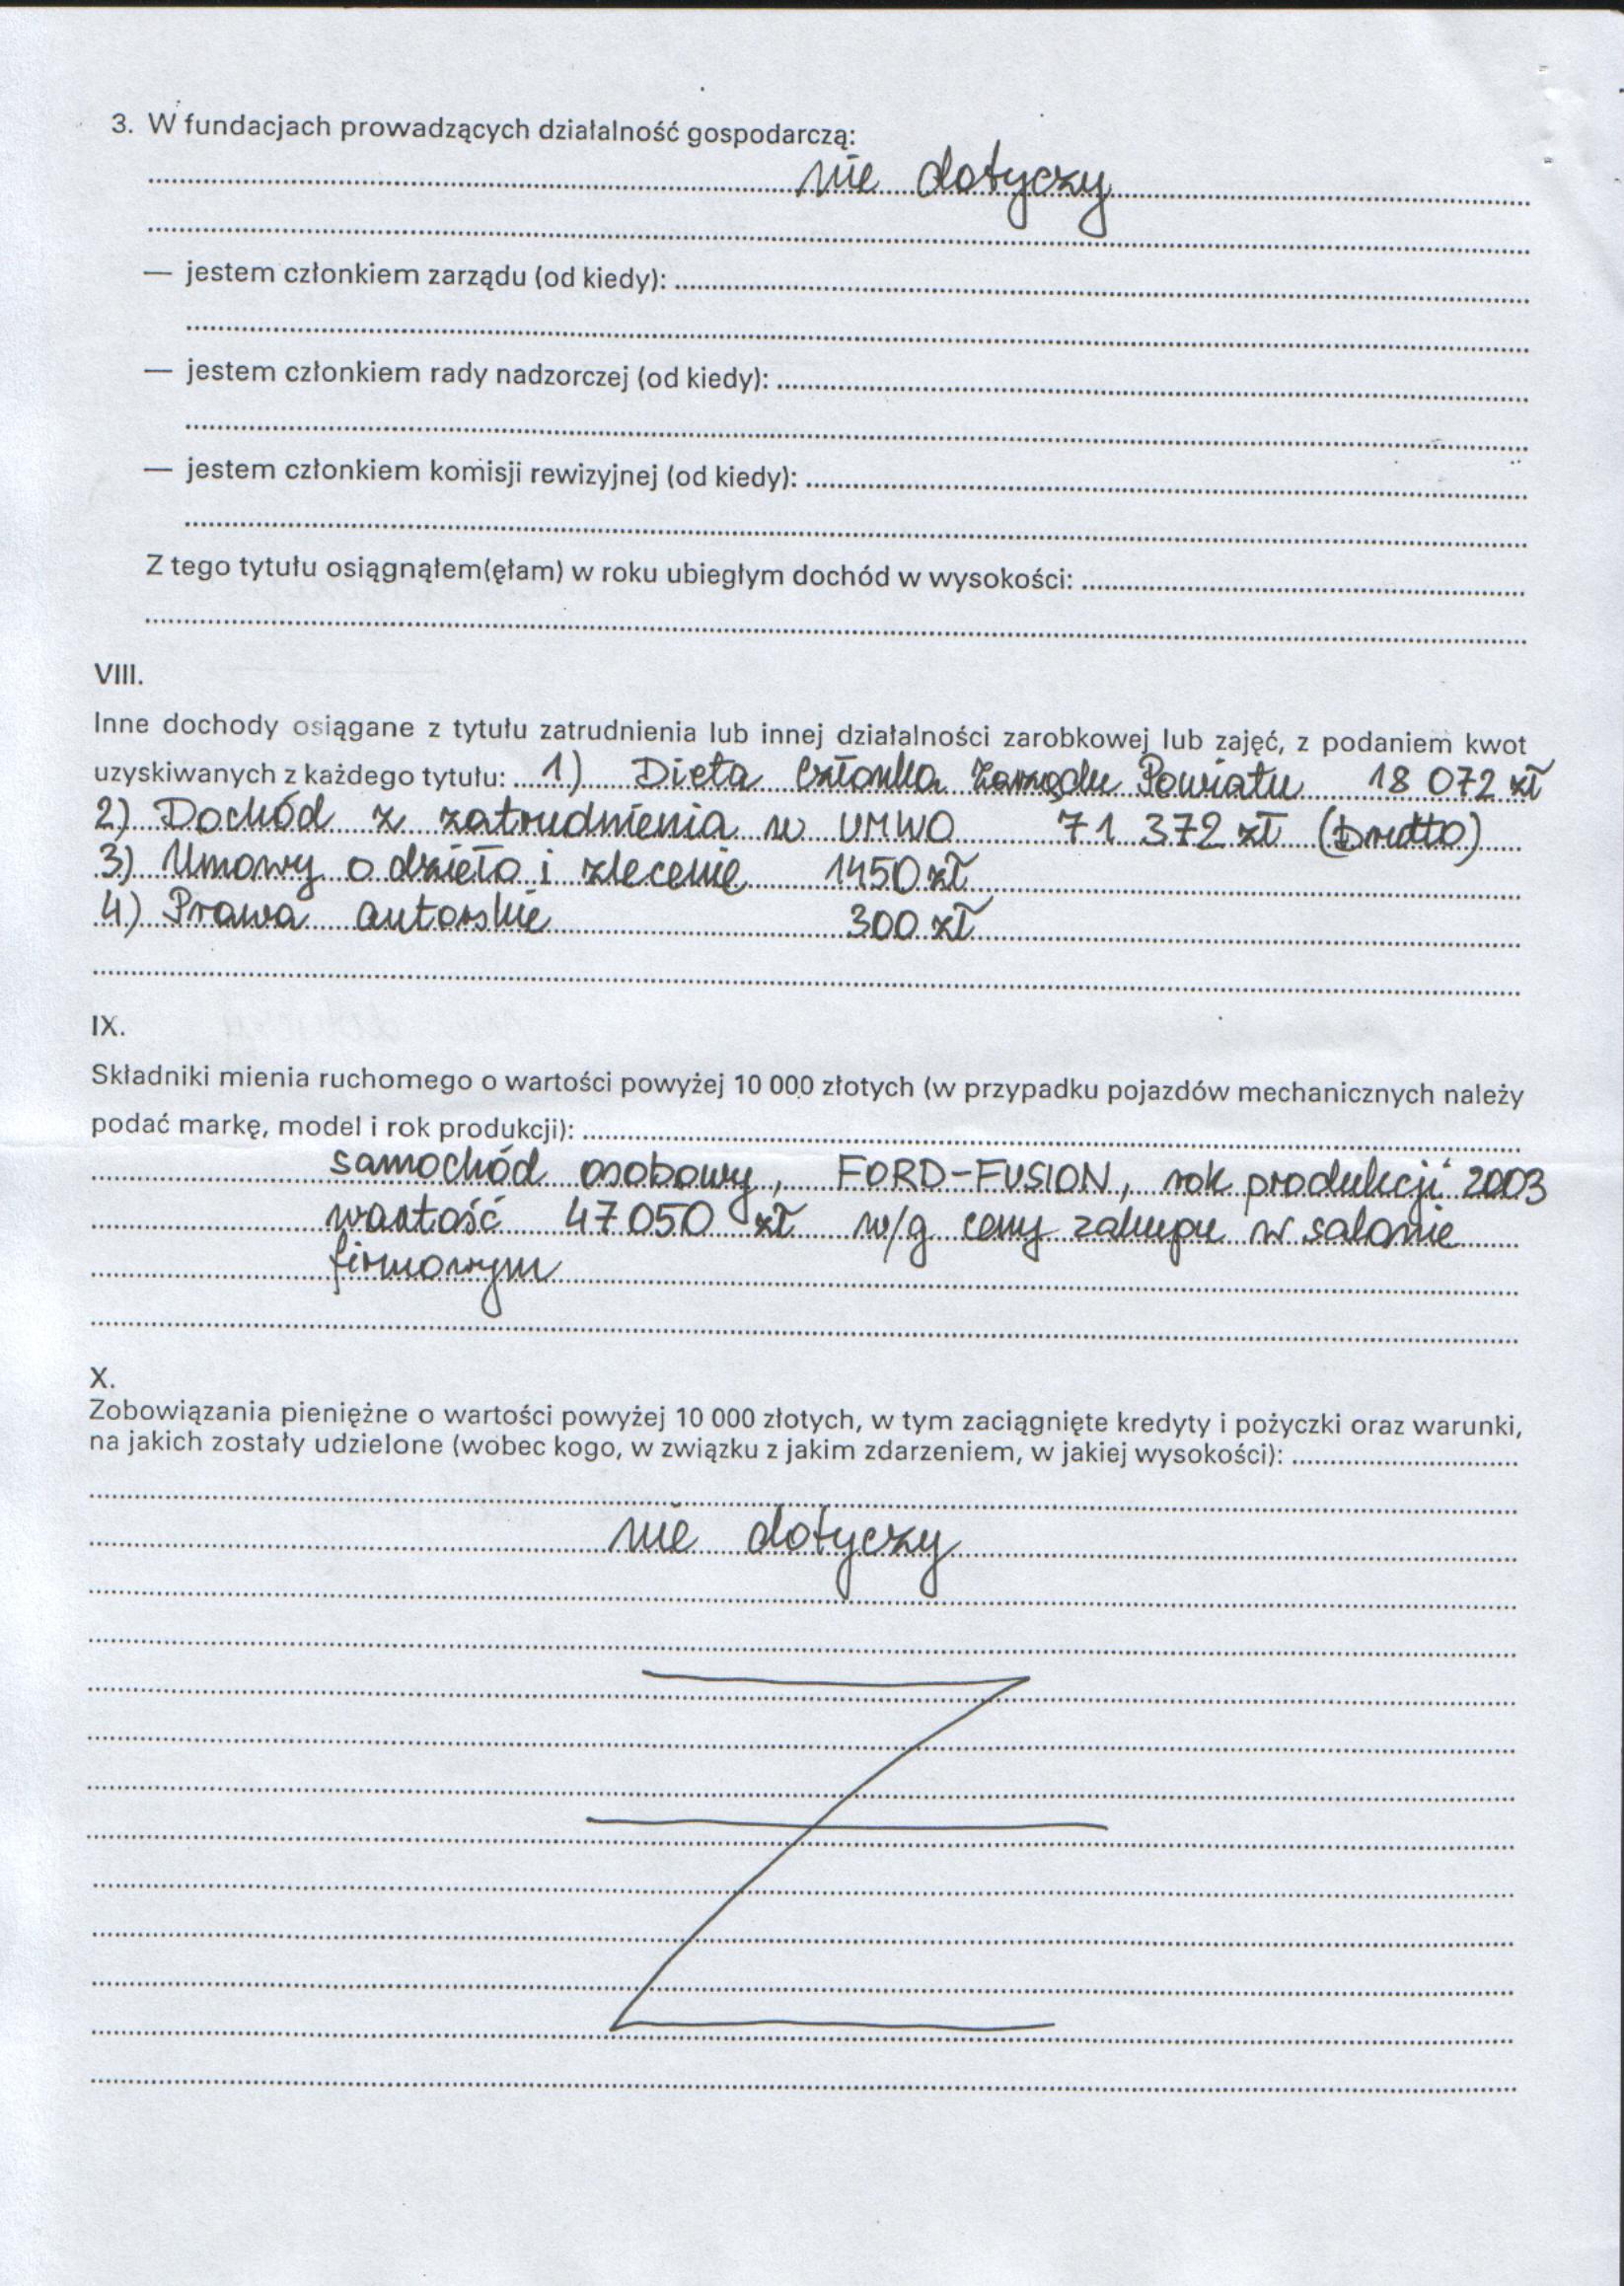 3. W fundacjach prowadzących działalność gospodarczą:
nie dotyczy
— jestem członkiem zarządu (od kiedy):
— jestem członkiem rady nadzorczej (od kiedy):
— jestem członkiem komisji rewizyjnej (od kiedy):
Z tego tytułu osiągnąłem(ęłam) w roku ubiegłym dochód w wysokości:
VIII.
Inne dochody osiągane z tytułu zatrudnienia lub innej działalności zarobkowej lub zajęć, z podaniem kwot
uzyskiwanych z każdego tytułu: 1) Dieta członka Zarządu Powiatu 18 072 zł
2) Dochód z zatrudnienia w UMWO 71 372 zł (brutto)
3) Umowy o dzieło i zlecenie 1450 zł
4) Prawa autorskie 300 zł
IX.
Składniki mienia ruchomego o wartości powyżej 10 000 złotych (w przypadku pojazdów mechanicznych należy
podać markę, model i rok produkcji):
samochód osobowy, FORD-FUSION, rok produkcji 2003
wartość 47 050 zł w/g ceny zakupu w salonie
firmowym
X.
Zobowiązania pieniężne o wartości powyżej 10 000 złotych, w tym zaciągnięte kredyty i pożyczki oraz warunki,
na jakich zostały udzielone (wobec kogo, w związku z jakim zdarzeniem, w jakiej wysokości):
nie dotyczy